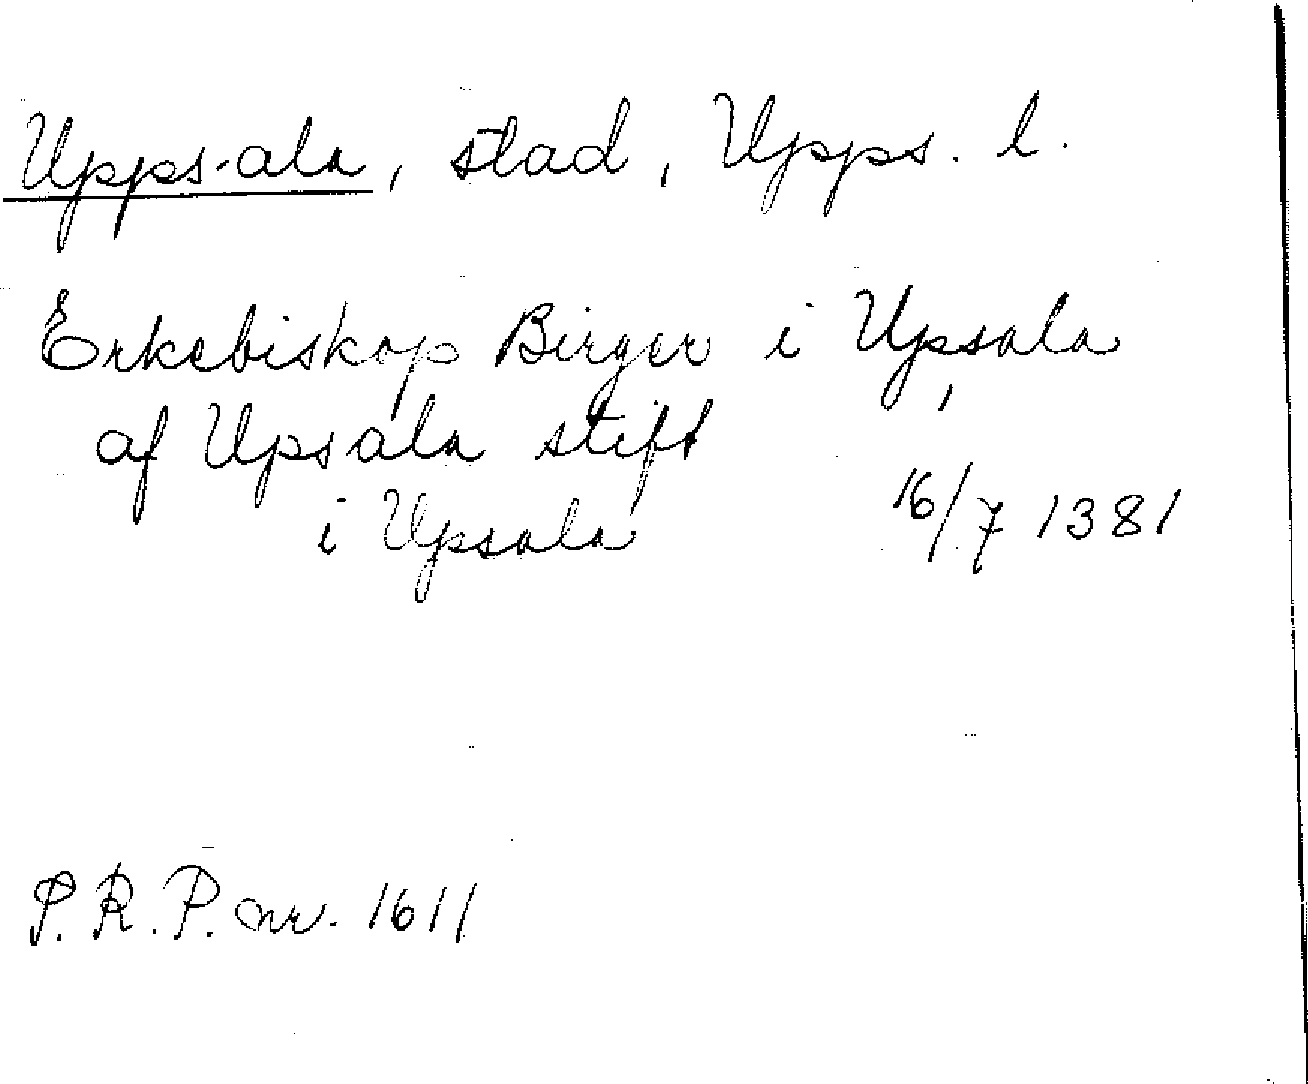 Uppsala, stad, Upps. l.
Erkebiskop Birger i Upsala,
af Upsala stift
i Upsala 16/7 1381
S.R.P. nr. 1611